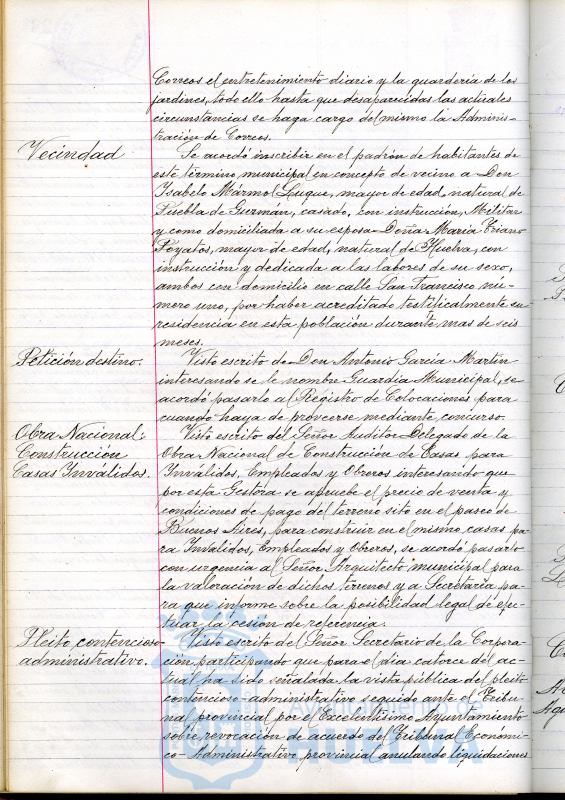 Correos el entretenimiento diario y la guardería de los
jardines, todo ello hasta que desaparecidas las actuales
circunstancias se haga cargo del mismo la Adminis-
tración de Correos.
Vecindad
Se acordó inscribir en el padrón de habitantes de
este término municipal en concepto de vecino a Don
Ysabelo Mármol Luque, mayor de edad, natural de
Puebla de Guzmán, casado, con instrucción, Militar
y como domiciliada a su esposa Doña María Triano
Poyatos, mayor de edad, natural de Huelva, con
instrucción y dedicada a las labores de su sexo,
ambos con domicilio en calle San Francisco nú-
mero uno, por haber acreditado testificalmente su
residencia en esta población durante mas de seis
meses.
Petición destino.
Visto escrito de Don Antonio García Martín
interesando se le nombre Guardia Municipal, se
acordó pasarlo al Registro de Colocaciones para
cuando haya de proveerse mediante concurso.
Obra Nacional:
Construcción
Casas Inválidos.
Visto escrito del Señor Auditor Delegado de la
Obra Nacional de Construcción de Casas para
Inválidos, Empleados y Obreros interesando que
por esta Gestora se apruebe el precio de venta y
condiciones de pago del terreno sito en el paseo de
Buenos Aires, para construir en el mismo casas pa-
ra Inválidos, Empleados y Obreros, se acordó pasarlo
con urgencia al Señor Arquitecto municipal para
la valoración de dichos terrenos y a Secretaría pa-
ra que informe sobre la posibilidad legal de efec-
tuar la cesión de referencia.
Pleito contencioso-
administrativo.
Visto escrito del Señor Secretario de la Corpora-
ción participando que para el día catorce del ac-
tual ha sido señalada la vista pública del pleito
contencioso-administrativo seguido ante el Tribu-
nal provincial por el Excelentísimo Ayuntamiento
sobre revocación de acuerdo del Tribunal Económi-
co-Administrativo provincial anulando liquidaciones
Ayuntamiento de
HUELVA